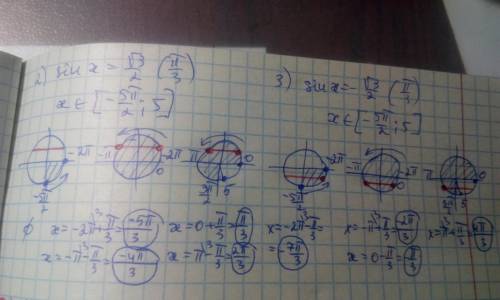 2) sin x = √3/2 (π/3)
x ∈ [-5π/2; 5]
-2π -π 0 -2π π 0
-5π/2 3π/2 5
x = -2π + π/3 = -5π/3 x = 0 + π/3 = π/3
x = -π - π/3 = -4π/3 x = π - π/3 = 2π/3
3) sin x = -√3/2 (π/3)
x ∈ [-5π/2; 5]
-2π = -π 0 -2π π 0
-5π/2 3π/2 5
x = -2π - π/3 = -7π/3
x = -π + π/3 = -2π/3 x = π + π/3 = 4π/3
x = 0 - π/3 =